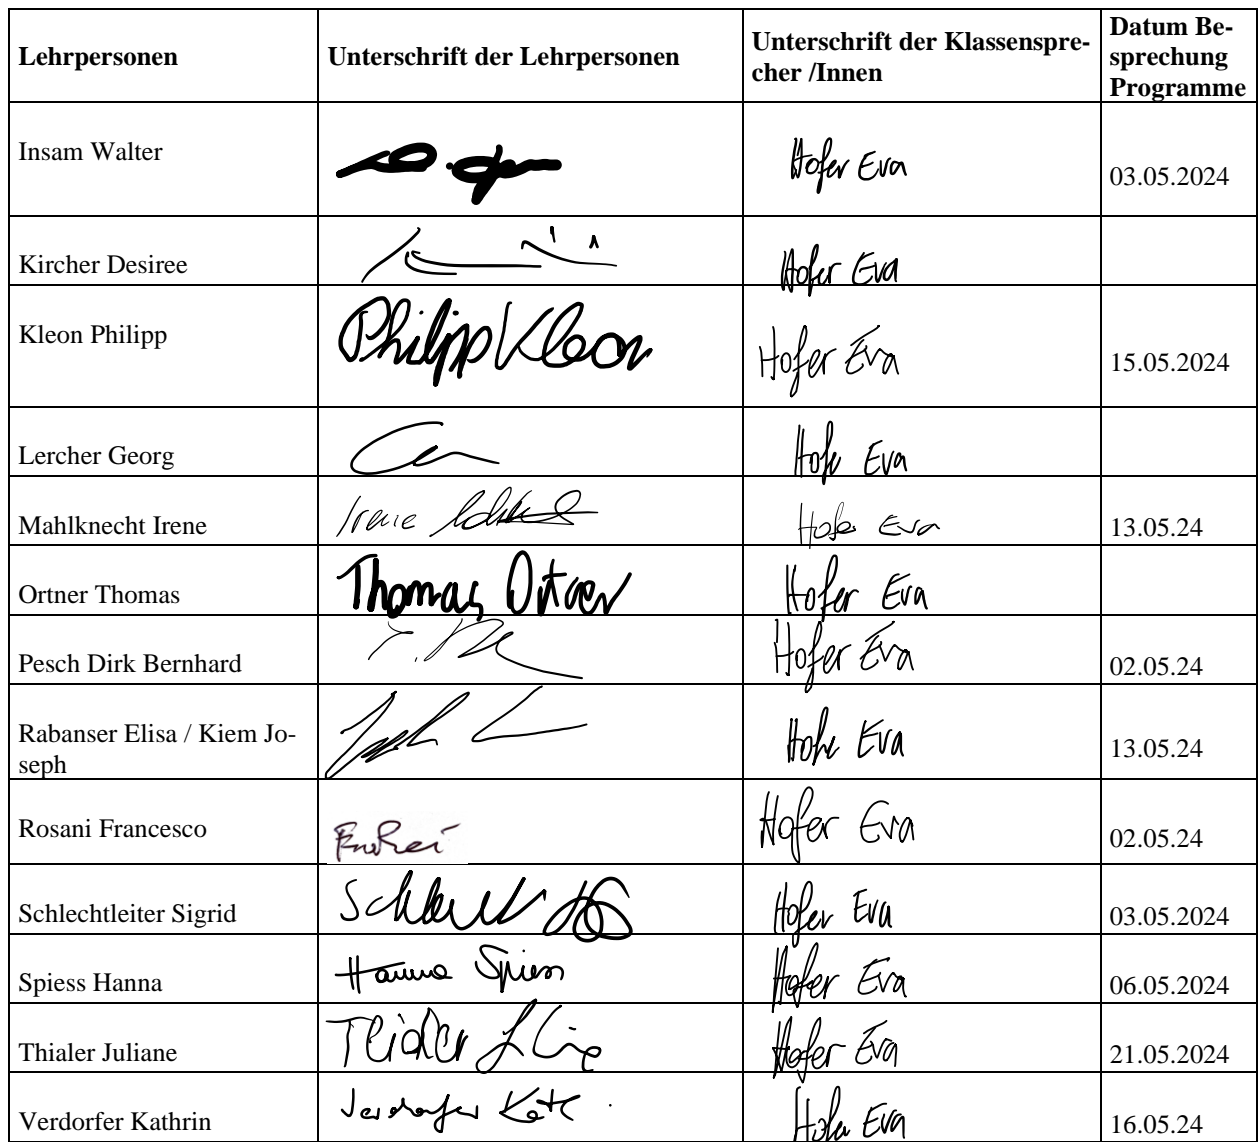 Lehrpersonen
Unterschrift der Lehrpersonen
Unterschrift der Klassenspre-
cher /Innen
Datum Be-
sprechung
Programme
Insam Walter
Hofer Eva
03.05.2024
Kircher Desiree
Hofer Eva
Kleon Philipp
Philipp Kleon
Hofer Eva
15.05.2024
Lercher Georg
Hofer Eva
Mahlknecht Irene
Irene
Hofer Eva
13.05.24
Ortner Thomas
Thomas Ortner
Hofer Eva
Pesch Dirk Bernhard
Hofer Eva
02.05.24
Rabanser Elisa / Kiem Jo-
seph
Hofer Eva
13.05.24
Rosani Francesco
Hofer Eva
02.05.24
Schlechtleiter Sigrid
Hofer Eva
03.05.2024
Spiess Hanna
Hanna Spiess
Hofer Eva
06.05.2024
Thialer Juliane
Thialer
Hofer Eva
21.05.2024
Verdorfer Kathrin
Verdorfer Kath
Hofer Eva
16.05.24